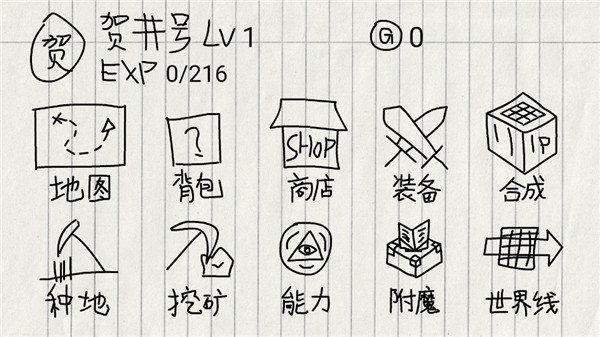 贺 贺井号 LV 1
G 0
EXP 0/216
?
SHOP
IP
地图 背包 商店 装备 合成
种地 挖矿 能力 附魔 世界线